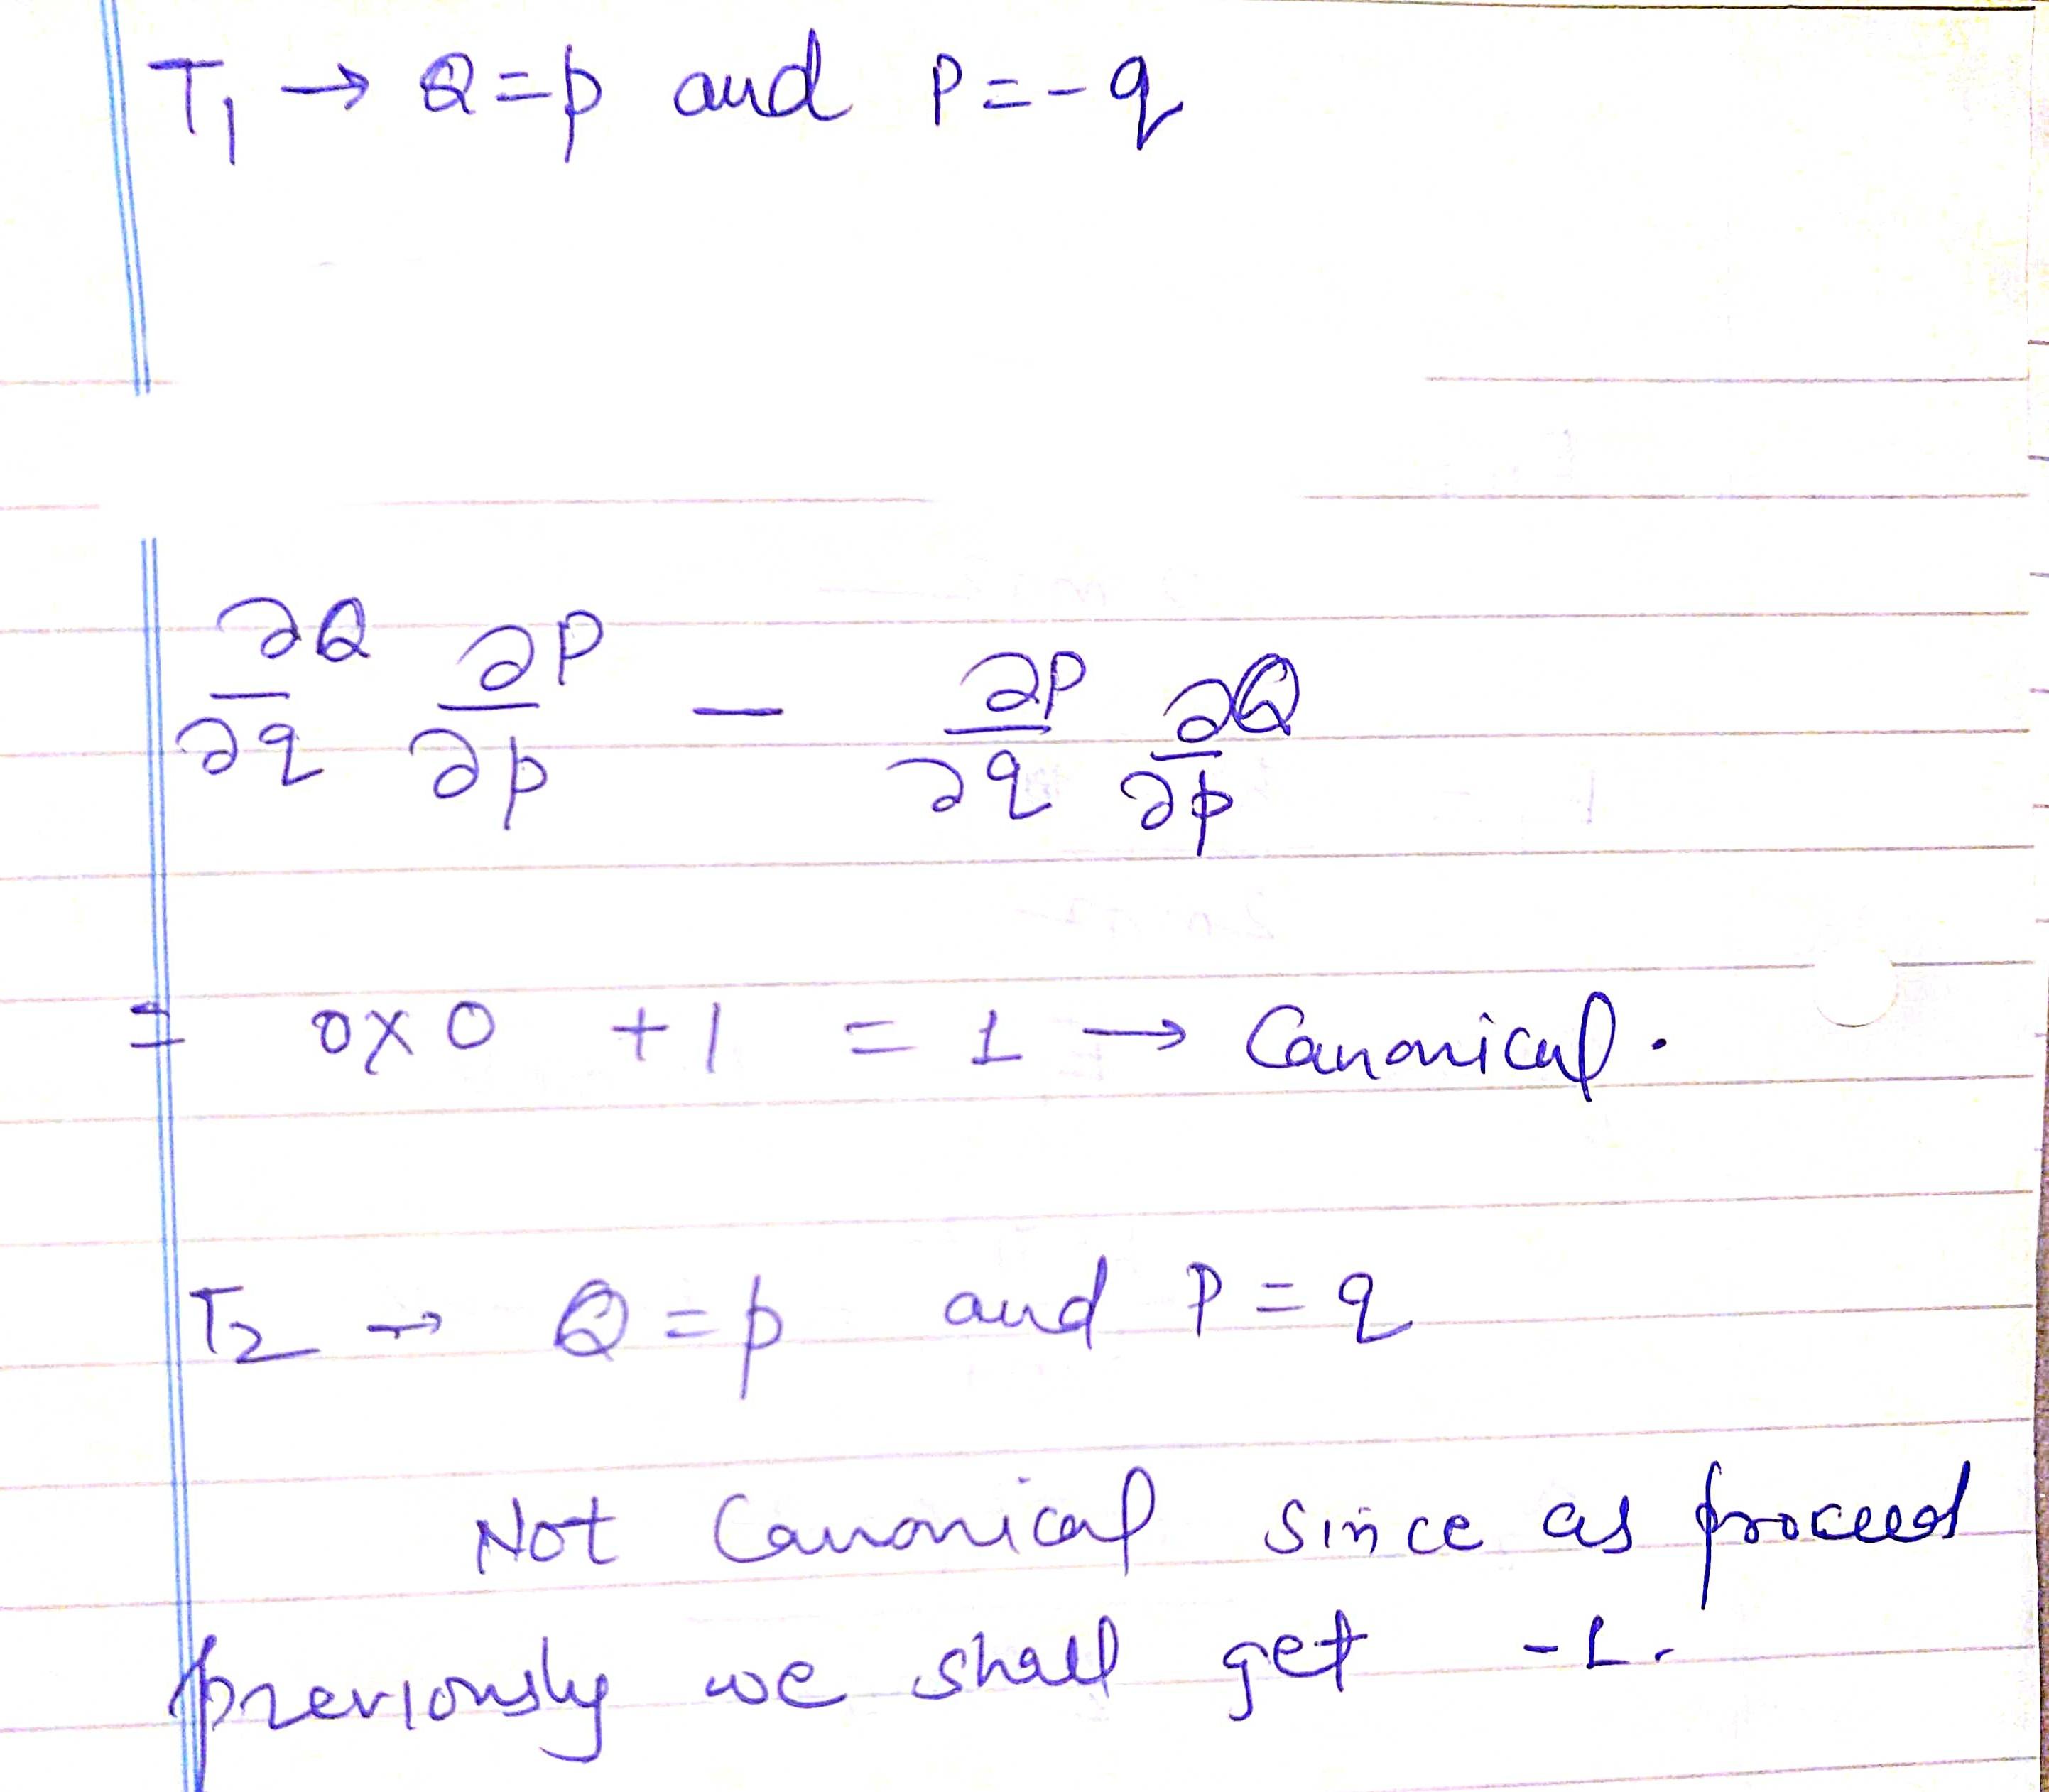 T₁ → Q = p and P = - q
∂Q/∂q ∂P/∂p - ∂P/∂q ∂Q/∂p
= 0 × 0 + 1 = 1 → Canonical.
T₂ → Q = p and P = q
Not Canonical since as proceed
previously we shall get -1.